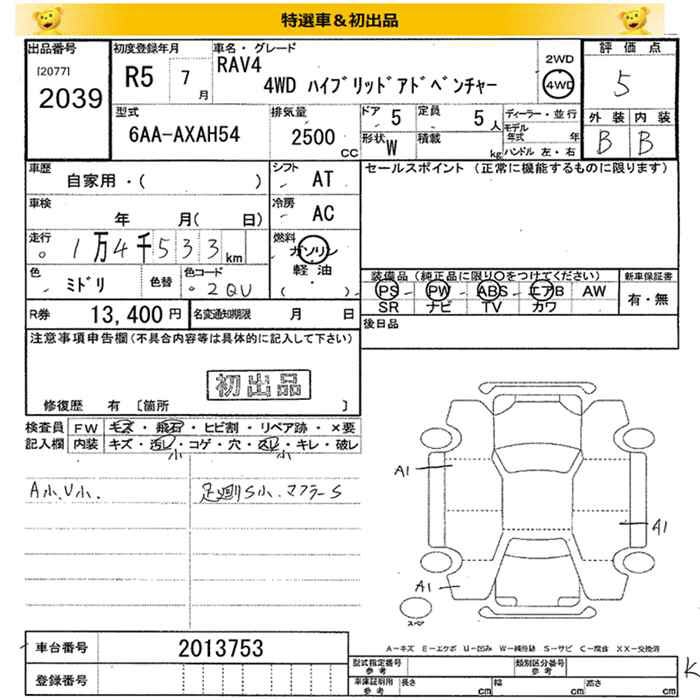 特選車＆初出品
出品番号 初度登録年月 車名・グレード 評価点
[2077] R5 7月 RAV4 2WD 5
2039 4WD ハイブリッドアドベンチャー 4WD
型式 排気量 ドア 5 定員 5人 ディーラー・並行 外装 内装
6AA-AXAH54 2500cc 形状 W 積載 kg モデル年式 年 B B
ハンドル 左・右
車歴 シフト AT セールスポイント (正常に機能するものに限ります)
自家用・( )
車検 年 月( 日) 冷房 AC
走行 1万4千533km 燃料 ガソリン
軽油
・( )
色 ミドリ 色替 色コード 2QU
装備品 (純正品に限り〇をつけてください) 新車保証書
PS PW ABS エアB AW 有・無
SR ナビ TV カワ
R券 13,400円 名変通知期限 月 日 後日品
注意事項申告欄(不具合内容等は具体的に記入して下さい)
初出品
修復歴 有 [箇所 ]
検査員 FW キズ・飛石・ヒビ割・リペア跡・×要
記入欄 内装 キズ・汚レ・コゲ・穴・スレ・キレ・破レ
小 小
A小.U小. 足廻りS小 マフラーS
A1
A1
A1
スペア
車台番号 2013753
A-キズ E-エクボ U-凹み W-補修跡 S-サビ C-腐食 XX-交換済
登録番号
型式指定番号 参考 類別区分番号 参考
車庫証明用 参考 長さ cm 幅 cm 高さ cm
K